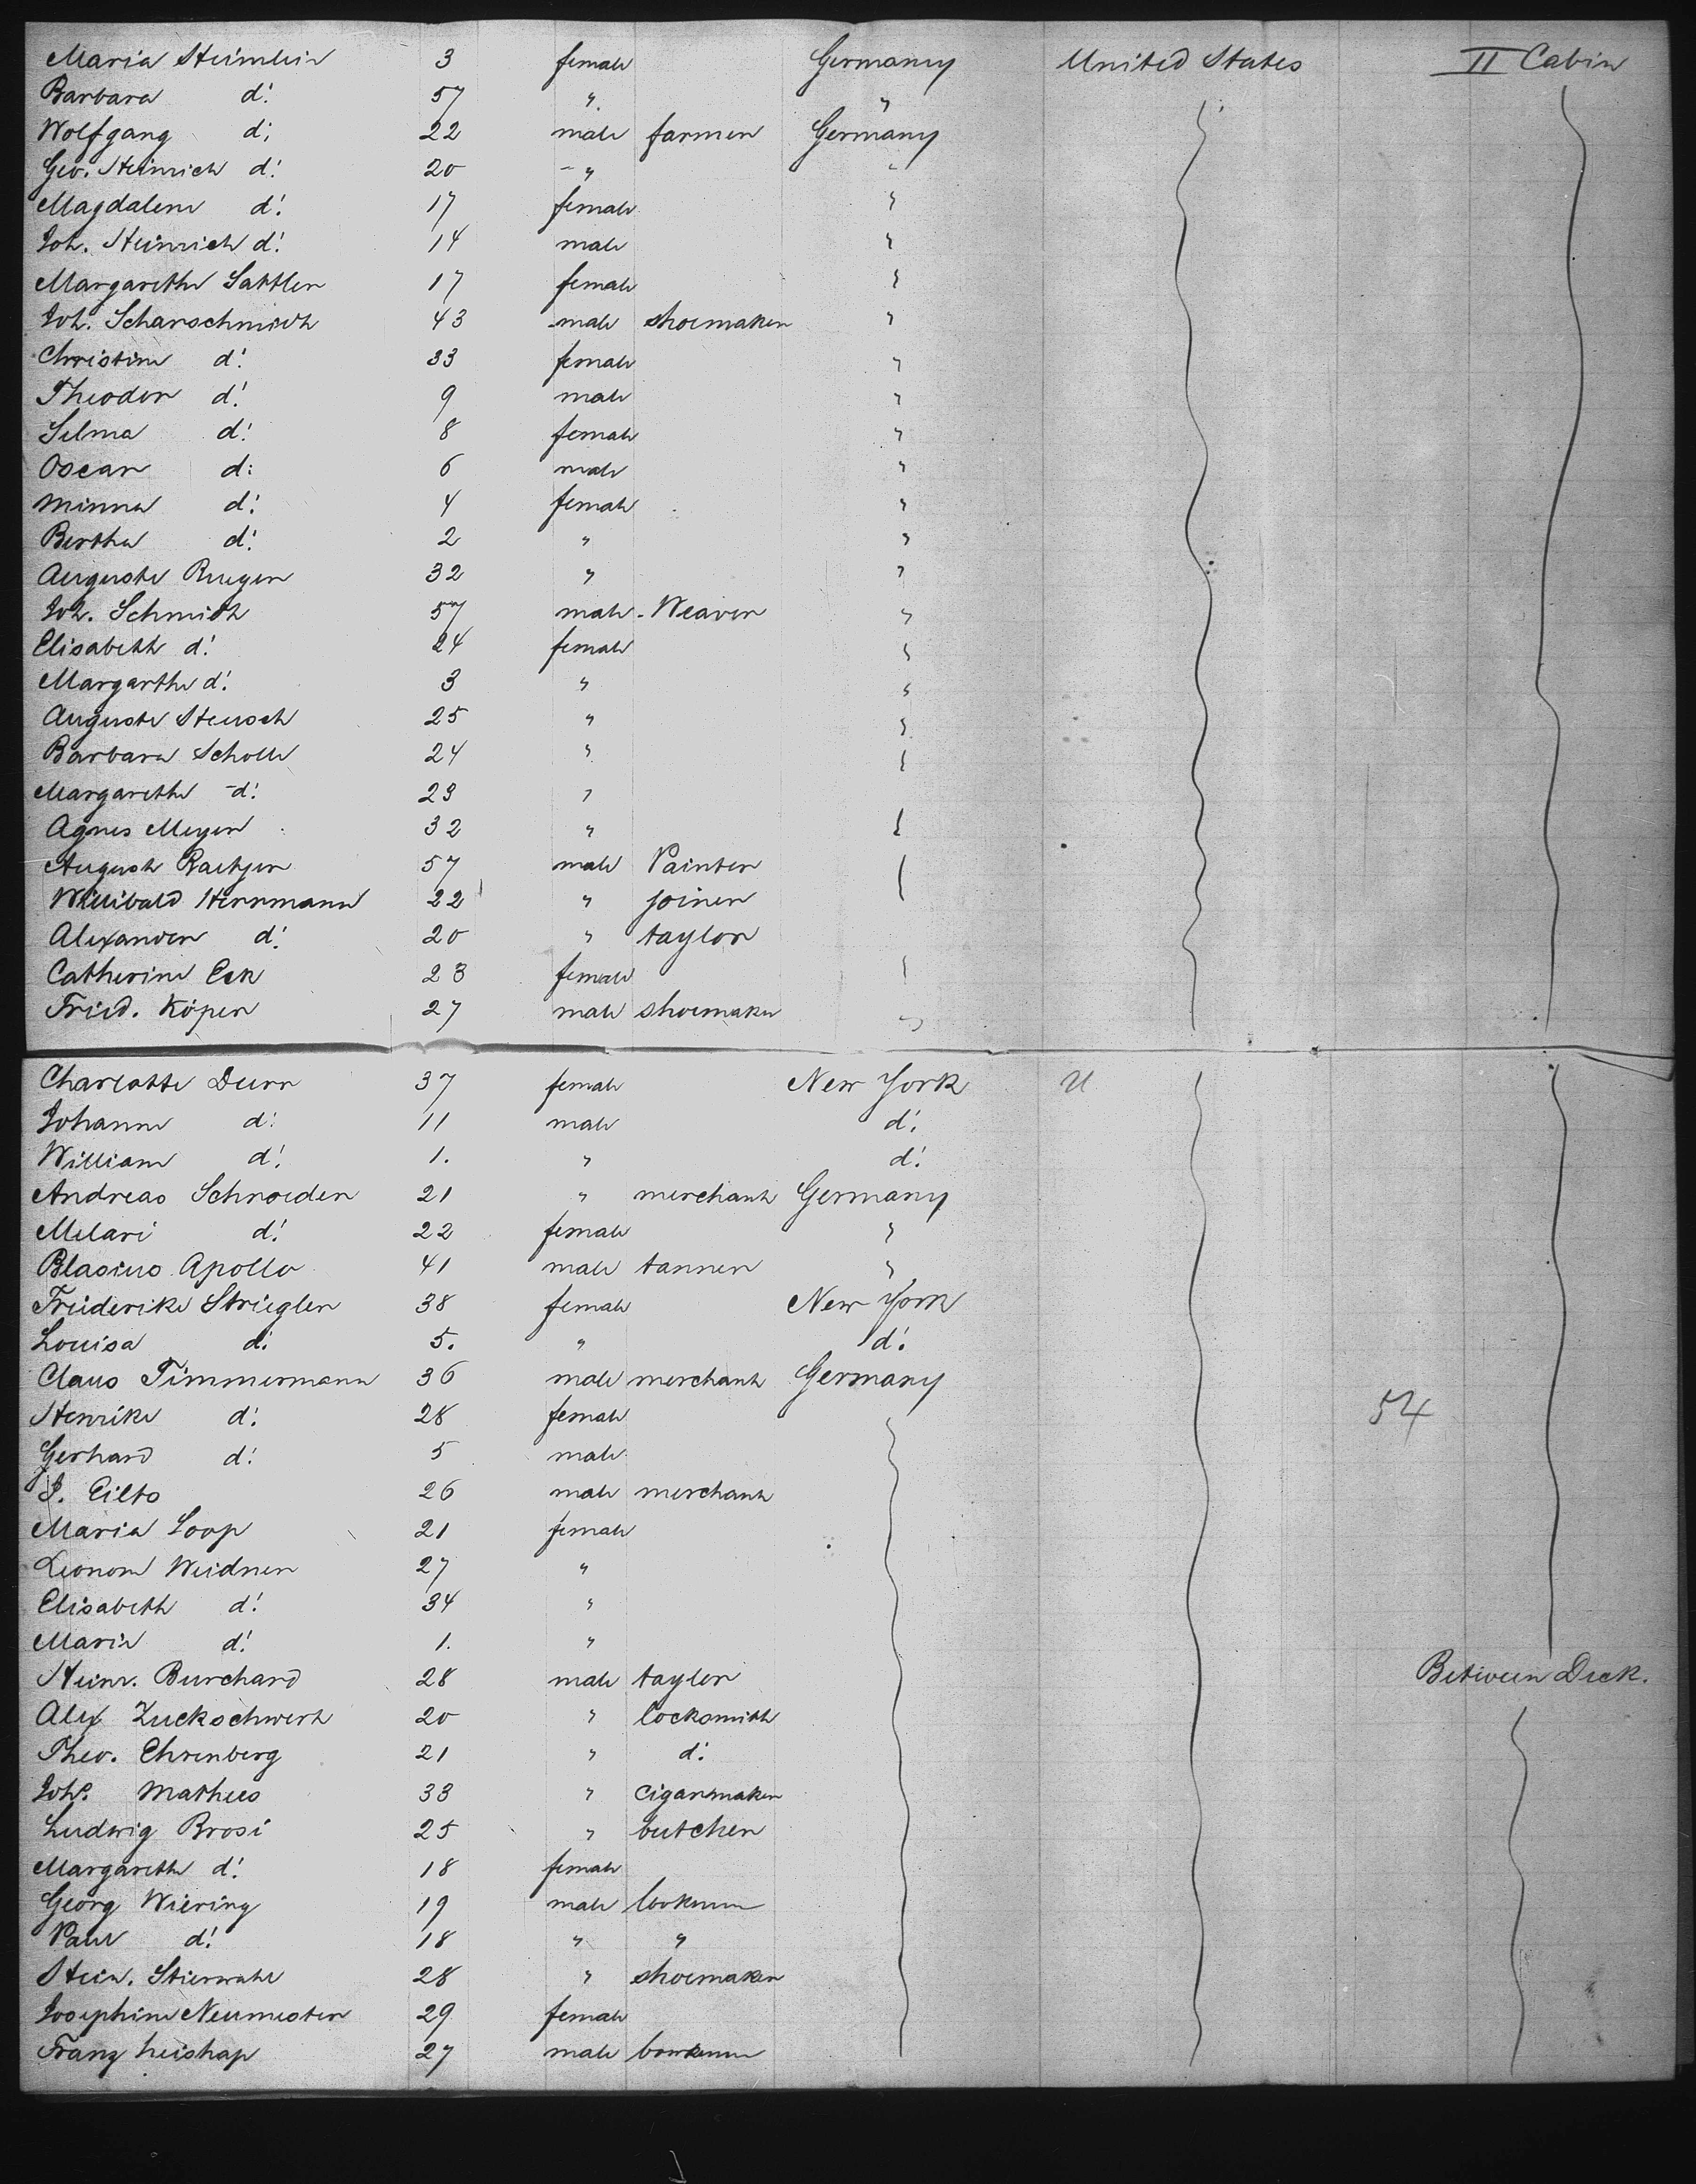 Maria Heimlein 3 female Germany United States II Cabin
Barbara d! 57 " "
Wolfgang d! 22 male farmer Germany
Geo. Heinrich d! 20 " "
Magdalene d! 17 female "
Joh. Heinrich d! 14 male "
Margarethe Sattler 17 female "
Joh. Scharschmidt 43 male shoemaker "
Christine d! 33 female "
Theodor d! 9 male "
Selma d! 8 female "
Oscar d! 6 male "
Minna d! 4 female "
Bertha d! 2 " "
Auguste Rueger 32 " "
Joh. Schmidt 57 male Weaver "
Elisabeth d! 24 female "
Margarthe d! 3 " "
Auguste 25 " "
Barbara Scholle 24 " "
Margarethe d! 23 "
Agnes Meyer 32 "
August Raetjen 57 male Painter
Willibald Herrmann 22 " joiner
Alexander d! 20 " taylor
Catherine Eck 23 female
Fried. Köper 27 male shoemaker "
Charlotte Durr 37 female New York U
Johann d! 11 male d!
William d! 1. " d!
Andreas Schroeder 21 " merchant Germany
Melari d! 22 female "
Blasius Apollo 41 male tanner "
Friederike Striegler 38 female New York
Louisa d! 5. " d!
Claus Timmermann 36 male merchant Germany
Henrike d! 28 female 54
Gerhard d! 5 male
J. Eilts 26 male merchant
Maria Loop 21 female
Leonore Weidner 27 "
Elisabeth d! 34 "
Maria d! 1. "
Heinr. Burchard 28 male taylor Between Deck.
Alex Zuckschwert 20 " locksmith
Theo. Ehrenberg 21 " d!
Joh. Matheis 33 " cigarmaker
Ludwig Brosi 25 " butcher
Margarethe d! 18 female
Georg Wiering 19 male
Paul d! 18 " "
Hein. Stierwahl 28 " shoemaker
Josephine Neumeister 29 female
Franz 27 male